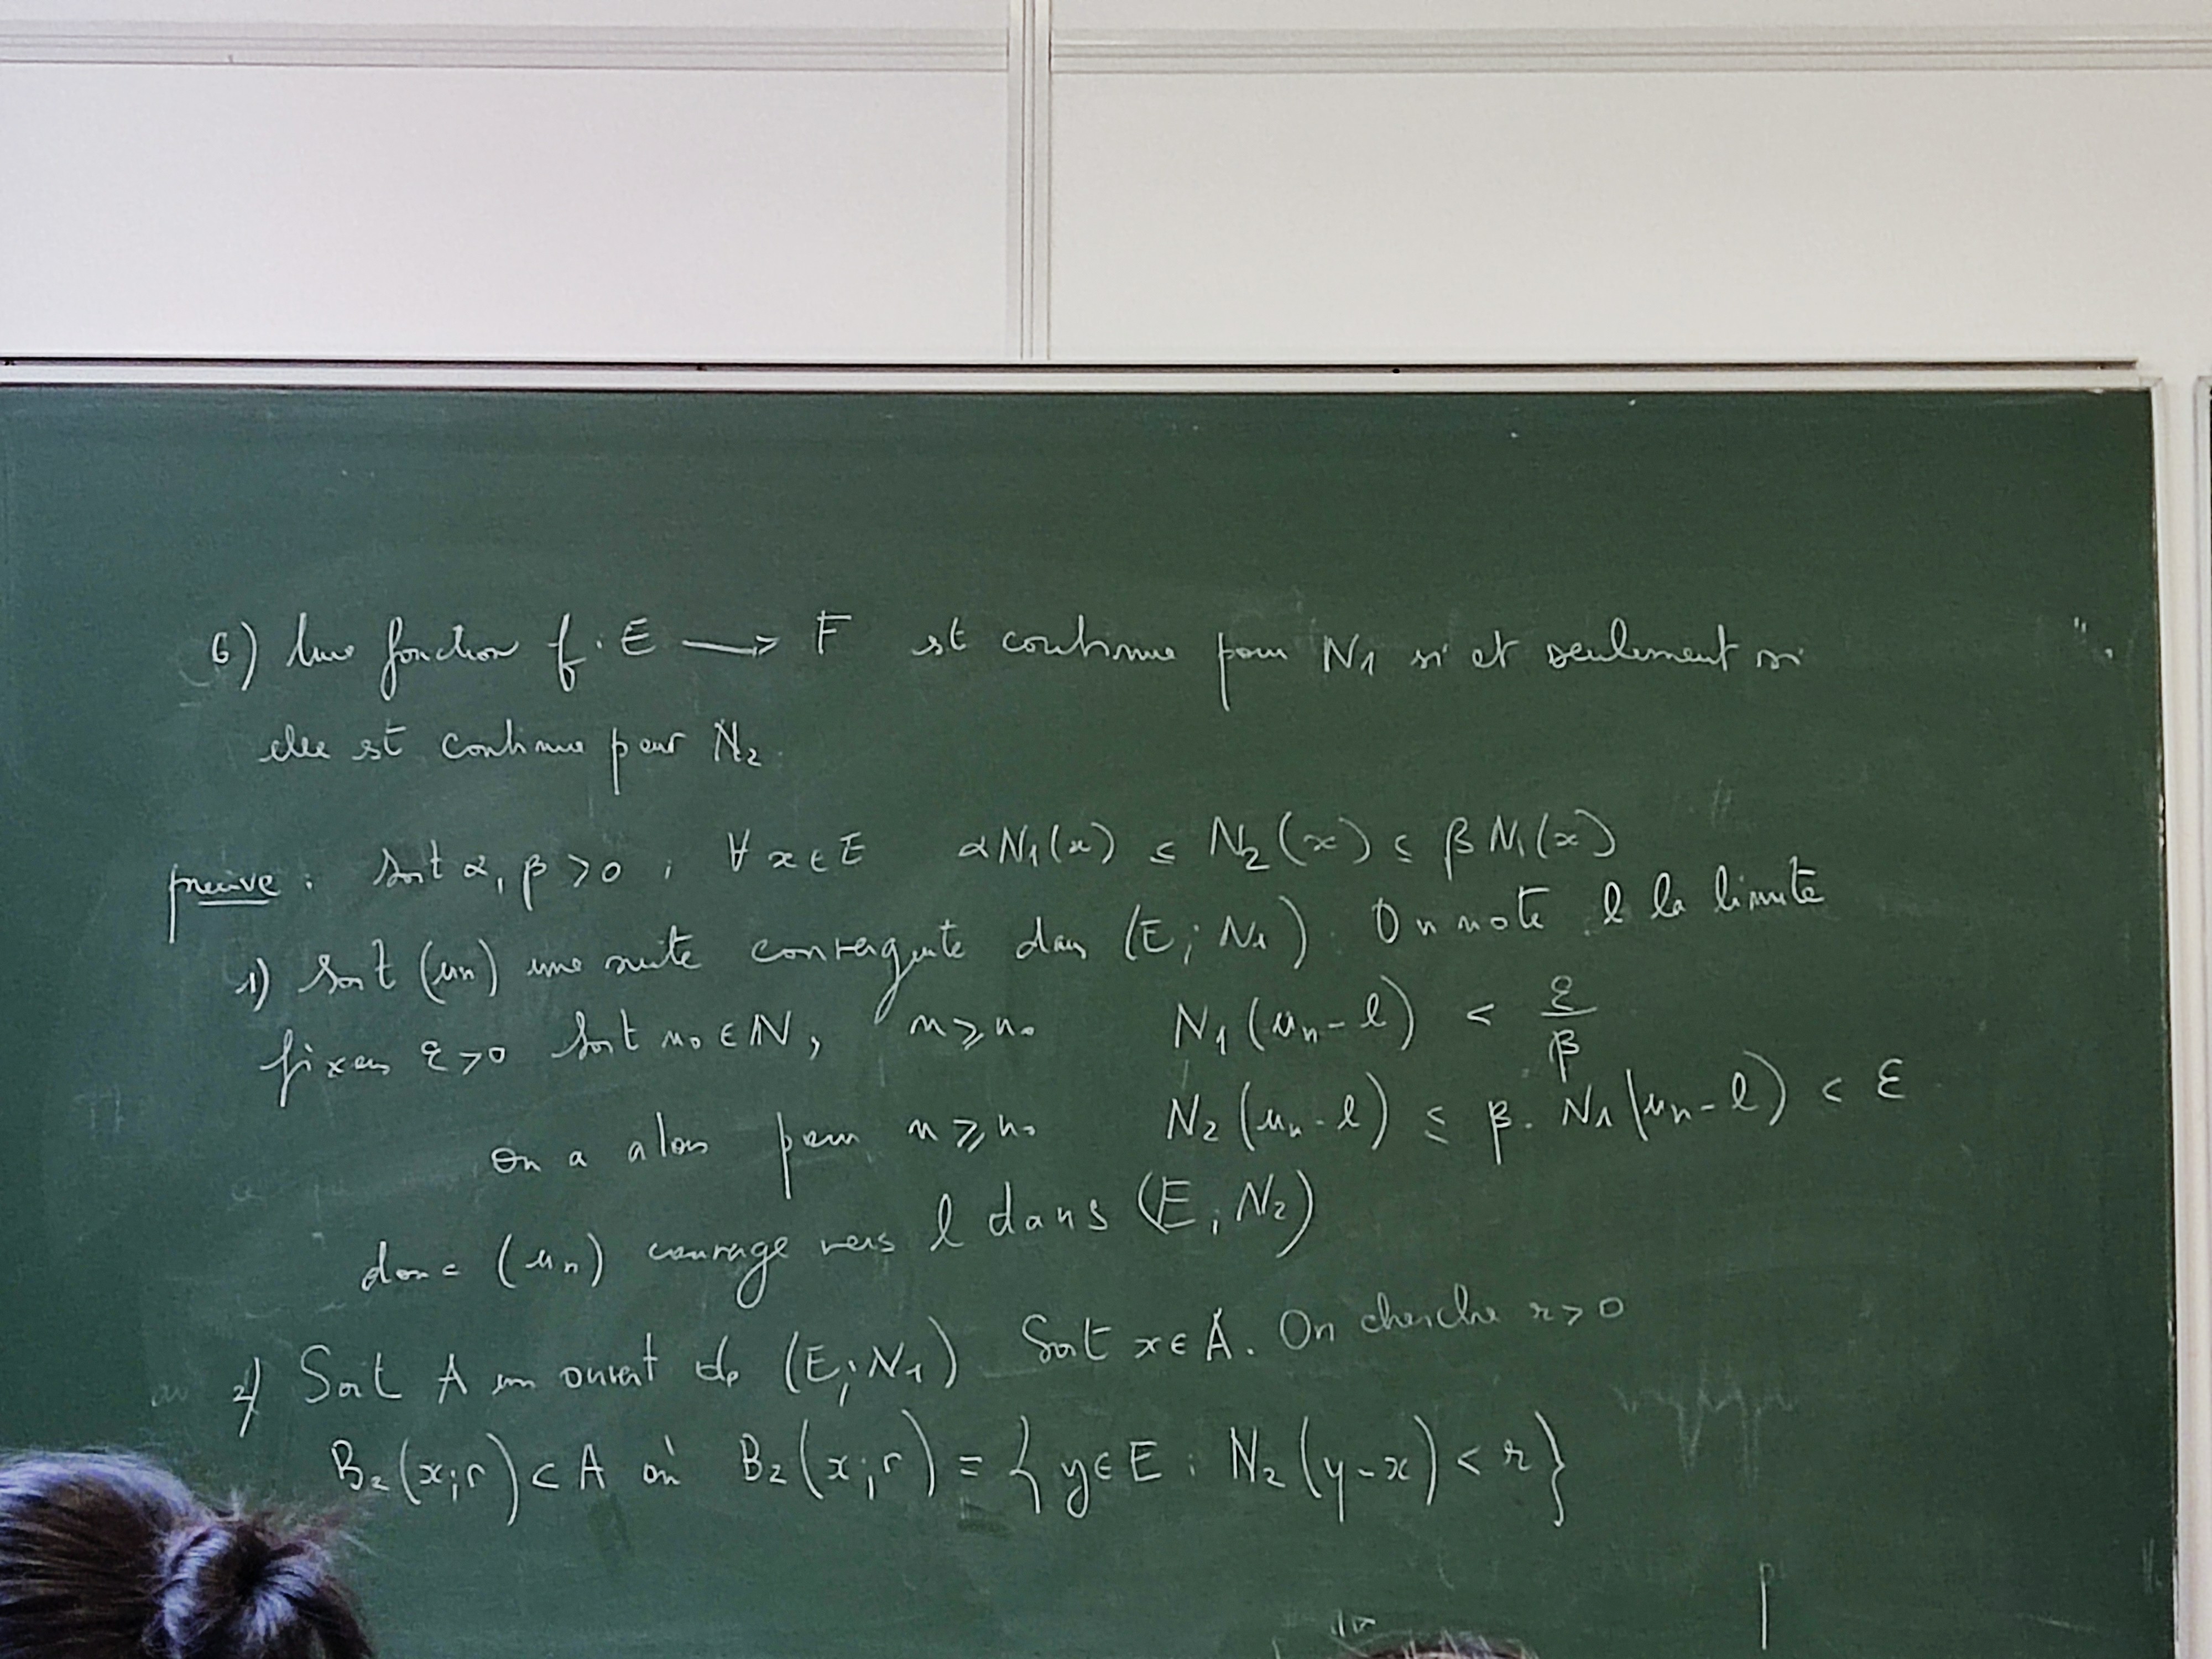 6) Une fonction f : E ⟶ F est continue pour N₁ si et seulement si
elle est continue pour N₂.
preuve : Soit α, β > 0 ; ∀ x ∈ E αN₁(x) ≤ N₂(x) ≤ βN₁(x)
1) Soit (uₙ) une suite convergente dans (E ; N₁). On note l la limite
fixons ε > 0 Soit n₀ ∈ ℕ, n ⩾ n₀ N₁(uₙ - l) < ε/β
On a alors pour n ⩾ n₀ N₂(uₙ - l) ≤ β · N₁(uₙ - l) < ε
donc (uₙ) converge vers l dans (E ; N₂)
2) Soit A un ouvert de (E ; N₁) Soit x ∈ A. On cherche r > 0
B₂(x ; r) ⊂ A où B₂(x ; r) = { y ∈ E : N₂(y - x) < r }